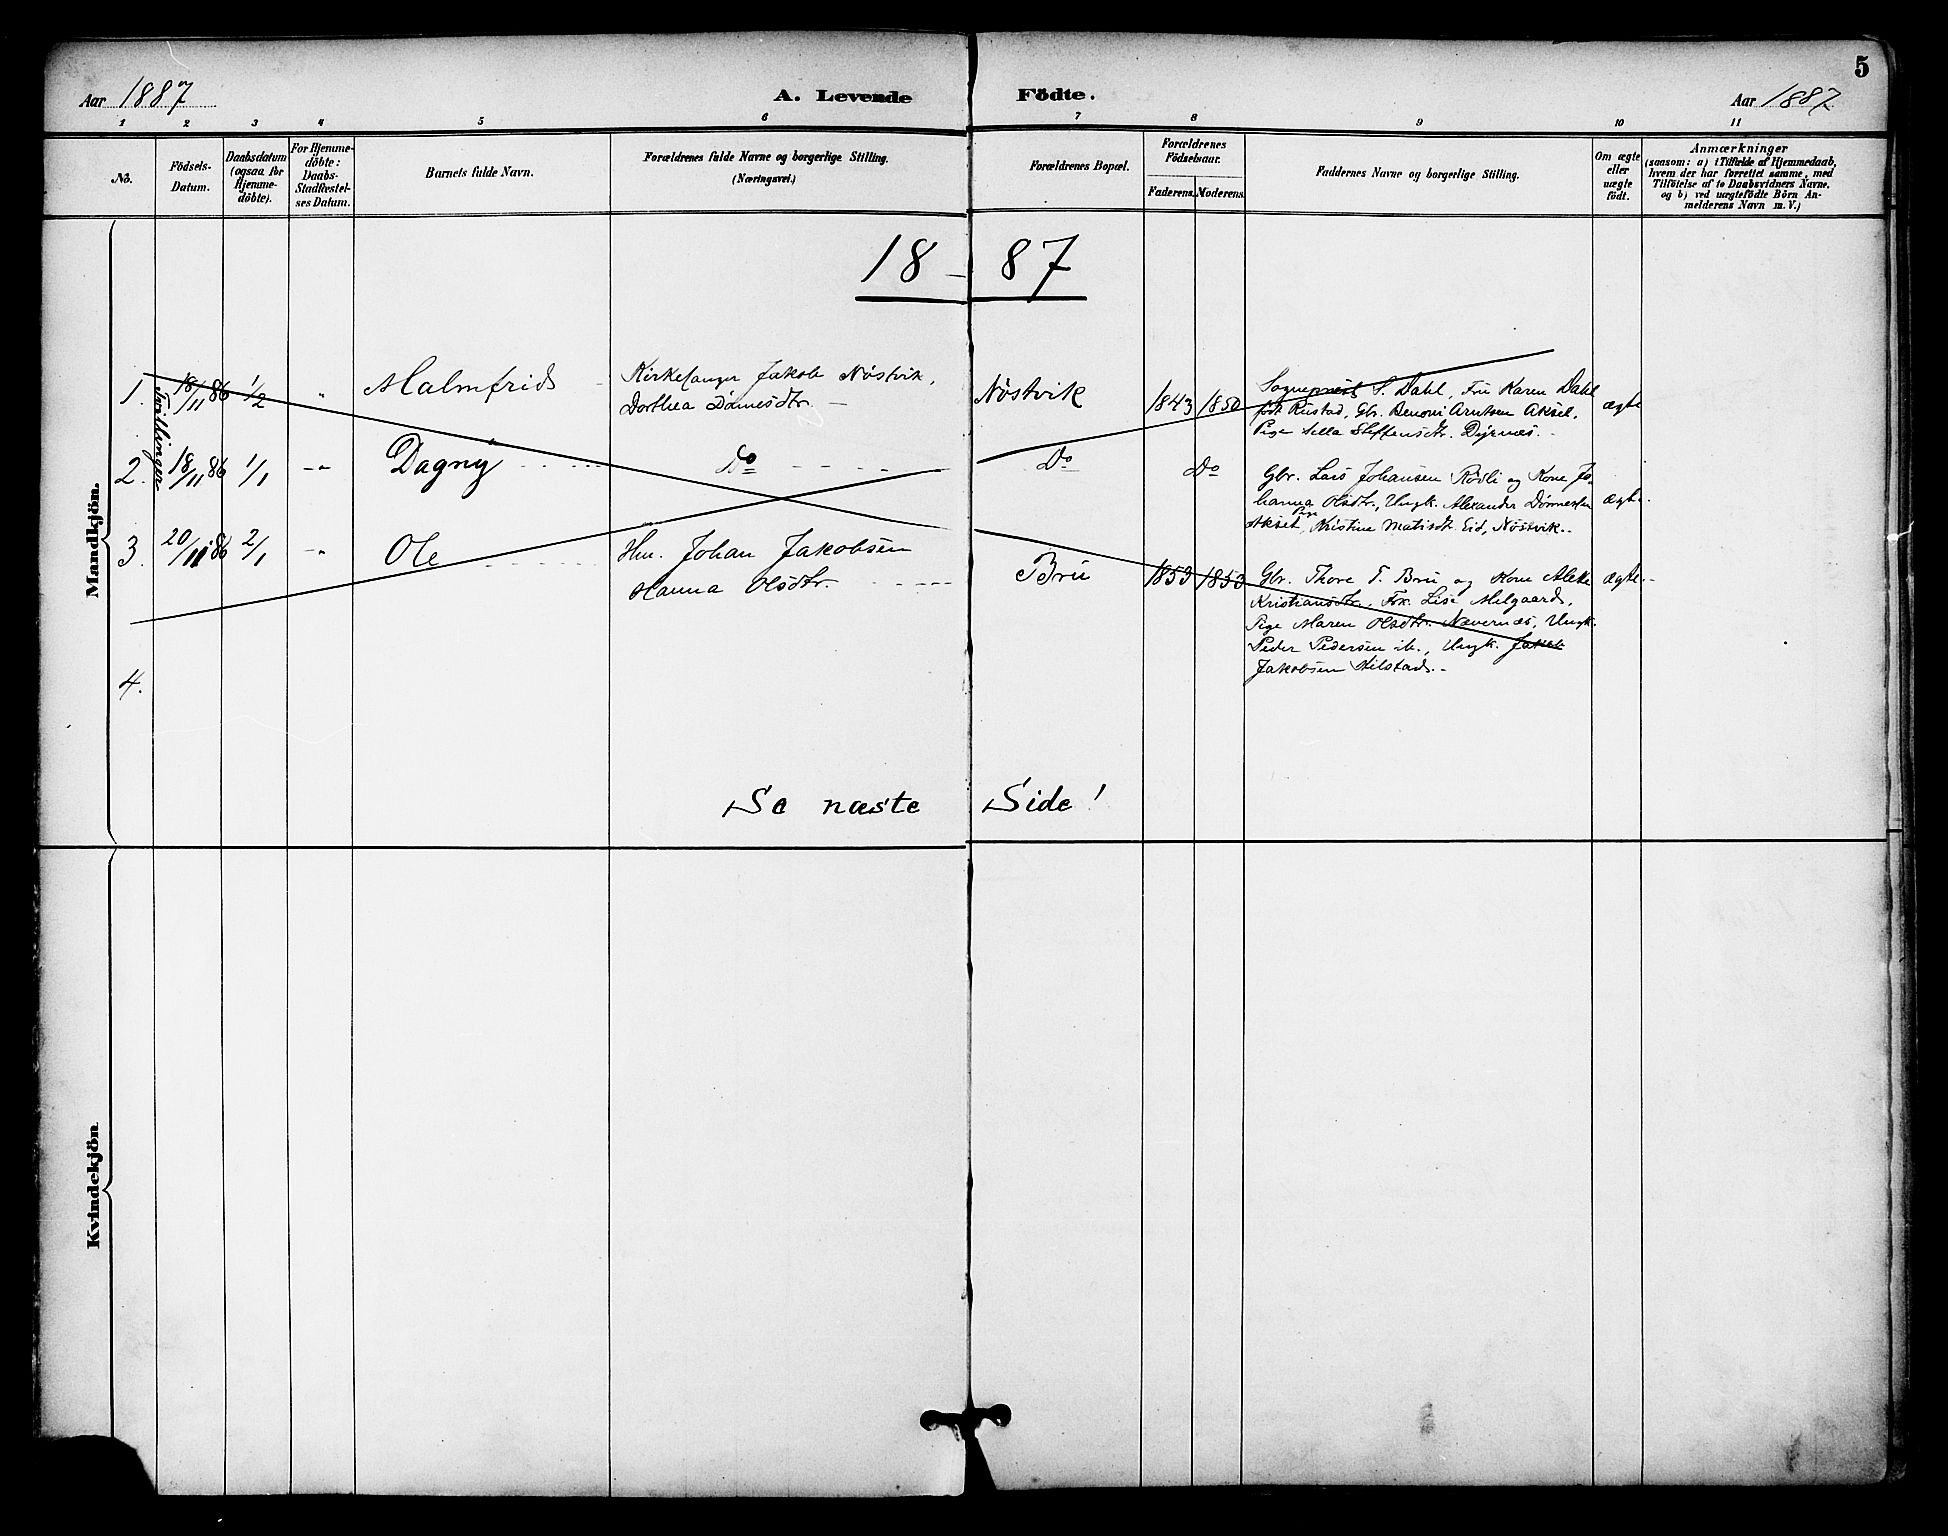 5
Aar 1887 A. Levende Födte. Aar 1887
1 2 3 4 5 6 7 8 9 10 11
No.
Födsels-
Datum.
Daabsdatum
(ogsaa for
Hjemme-
döbte).
For Hjemme-
döbte:
Daabs-
Stadfæstel-
ses Datum.
Barnets fulde Navn.
Forældrenes fulde Navne og borgerlige Stilling.
(Næringsvei.)
Forældrenes Bopæl.
Forældrenes
Födselsaar.
Faderens. Moderens.
Faddernes Navne og borgerlige Stilling.
Om ægte
eller
uægte
födt.
Anmærkninger
(saasom: a) i Tilfælde af Hjemmedaab,
hvem der har forrettet samme, med
Tilföielse af to Daabsvidners Navne,
og b) ved uægtefödte Börn An-
melderens Navn m. V.)
18 - 87
Mandkjön.
Tvillinger
1. 18/11 86 1/2 " Malmfrid
Kirkesanger Jakob Nøstvik,
Dorthea Dønnesdtr. -
Nøstvik 1843 1850
Sogneprest S. Dahl, Fru Karen Dahl
født Rustad, Gbr. Benoni Arntsen Aksel,
Pige Steffensdtr. Dyrnæs.
ægte
2. 18/11 86 1/1 -"- Dagny Do Do Do
Gbr. Lars Johansen Rødli og Kone Jo-
hanna Olsdtr., Ungk. Alexander
Akset, Pige Kristine Matisdt. Eid, Nøstvik.
ægte.
3. 20/11 86 2/1 -"- Ole
Hm. Johan Jakobsen
Hanna Olsdtr.
Bru 1853 1853
Gbr. Thore T. Bru og Kone Alette
Kristiansdtr., Frk. Lise Melgaard,
Pige Maren Olsdtr. Nævernæs, Ungk.
Peder Pedersen ib., Ungk. Jakob
Jakobsen Hilstad.
ægte.
4.
Se næste Side!
Kvindekjön.